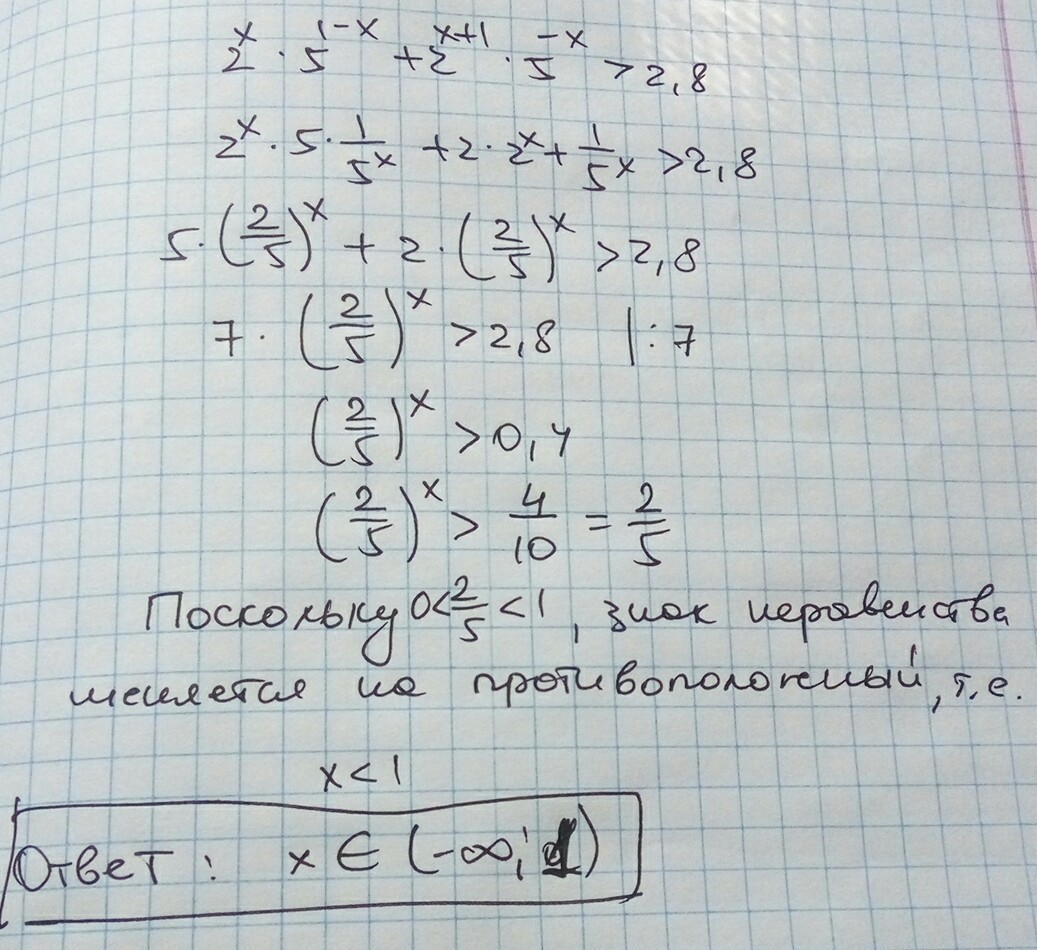 2^x · 5^{1-x} + 2^{x+1} · 5^{-x} > 2,8
2^x · 5 · \frac{1}{5^x} + 2 · 2^x + \frac{1}{5^x} > 2,8
5 · (\frac{2}{5})^x + 2 · (\frac{2}{5})^x > 2,8
7 · (\frac{2}{5})^x > 2,8 | : 7
(\frac{2}{5})^x > 0,4
(\frac{2}{5})^x > \frac{4}{10} = \frac{2}{5}
Поскольку 0 < \frac{2}{5} < 1, знак неравенства
меняется на противоположный, т.е.
x < 1
Ответ: x ∈ (-∞; 1)